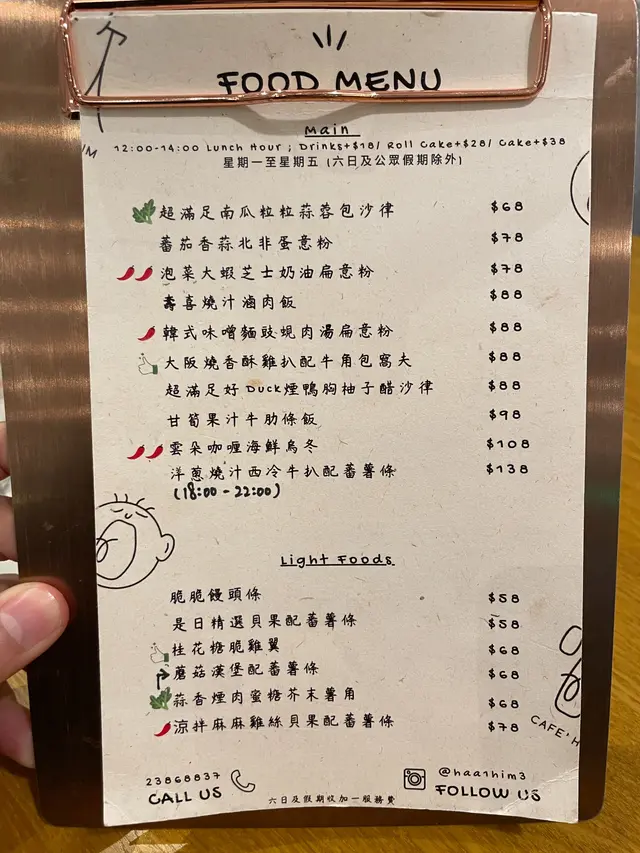 FOOD MENU
Main
12:00-14:00 Lunch Hour ; Drinks+$18/ Roll Cake+$28/ Cake+$38
星期一至星期五 (六日及公眾假期除外)
超滿足南瓜粒粒蒜蓉包沙律 $68
蕃茄香蒜北非蛋意粉 $78
泡菜大蝦芝士奶油扁意粉 $78
壽喜燒汁滷肉飯 $88
韓式味噌麵豉蜆肉湯扁意粉 $88
大阪燒香酥雞扒配牛角包窩夫 $88
超滿足好Duck煙鴨胸柚子醋沙律 $88
甘筍果汁牛肋條飯 $98
雲朵咖喱海鮮烏冬 $108
洋蔥燒汁西冷牛扒配蕃薯條 $138
(18:00-22:00)
Light Foods
脆脆饅頭條 $58
是日精選貝果配蕃薯條 $58
桂花糖脆雞翼 $68
蘑菇漢堡配蕃薯條 $68
蒜香煙肉蜜糖芥末薯角 $68
涼拌麻麻雞絲貝果配蕃薯條 $78
CAFE'H
23868837
CALL US
六日及假期收加一服務費
@haa1him3
FOLLOW US